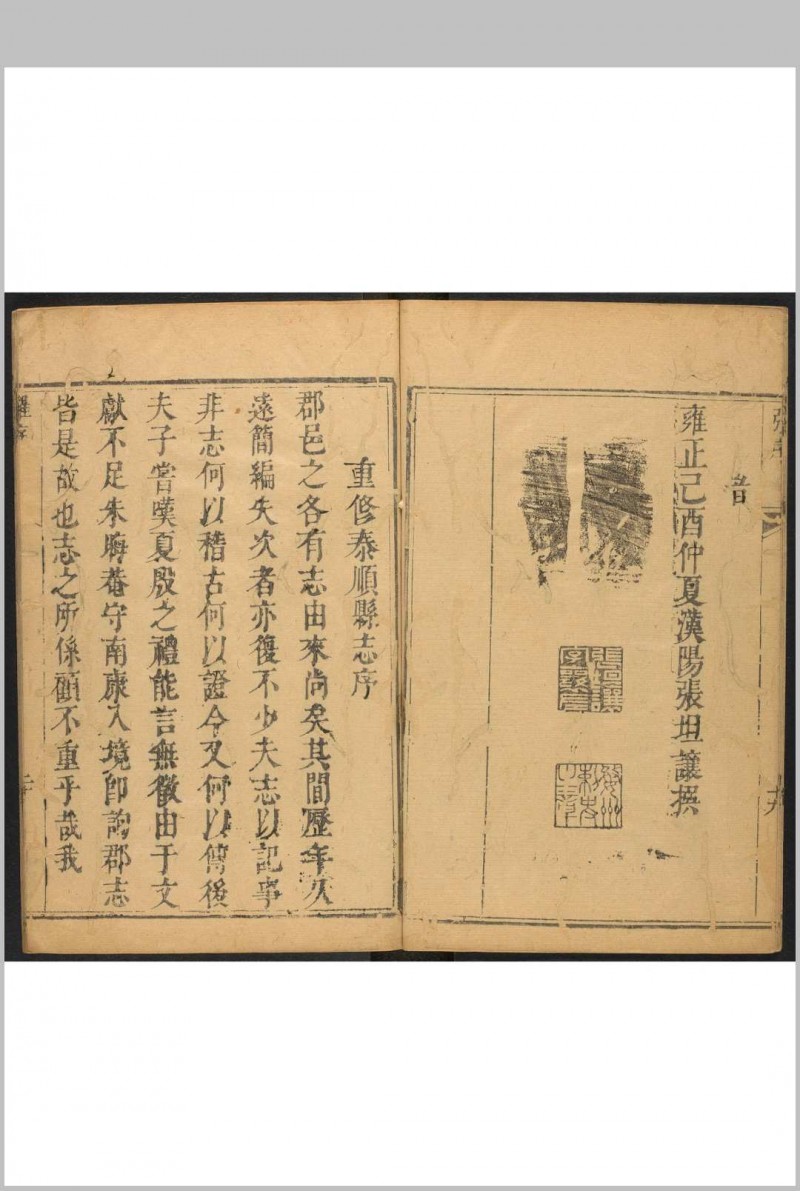 音
雍正己酉仲夏漢陽張坦讓撰
重修泰順縣志序
郡邑之各有志由來尚矣其間歷年久
遠簡編失次者亦復不少夫志以記事
非志何以稽古何以證今又何以傳後
夫子嘗嘆夏殷之禮能言無徵由于文
獻不足朱晦菴守南康入境卽詢郡志
皆是故也志之所係顧不重乎哉我